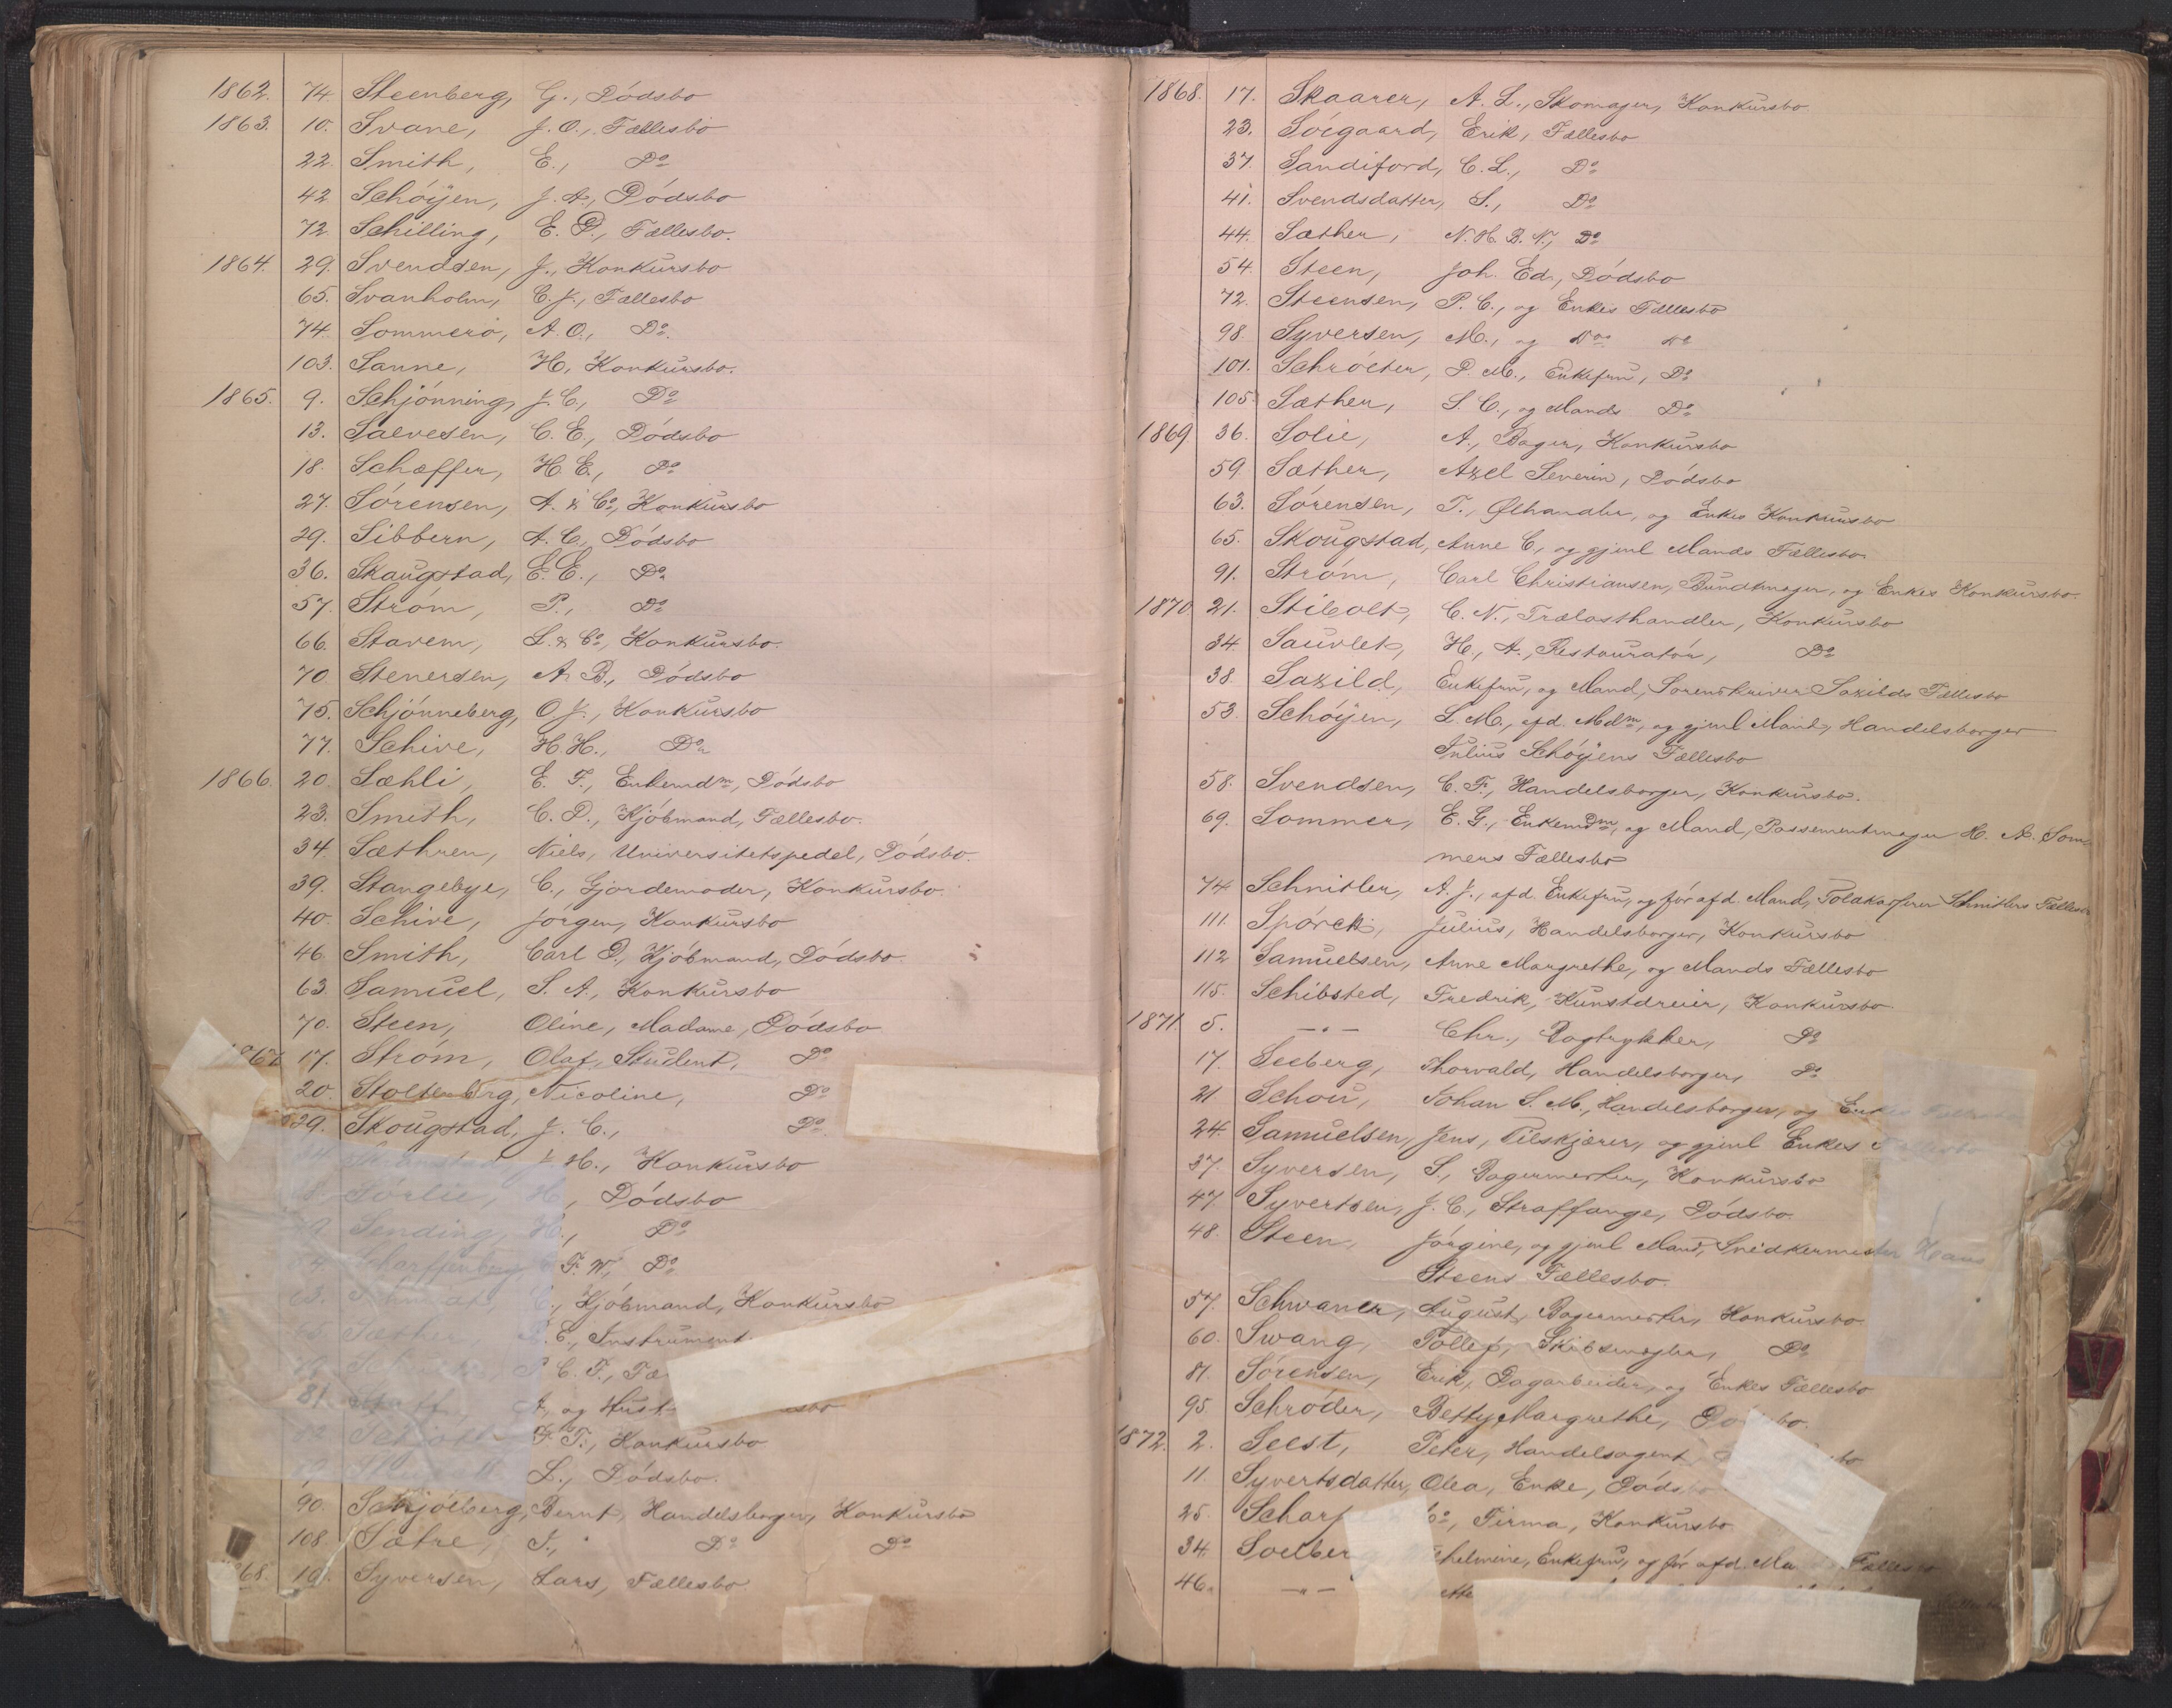 1862. 74. Steenberg, G., Dødsbo
1863. 10. Svane, J. O., Fællesbo
22. Smith, E., Do
42. Schøijen, J. A., Dødsbo
72. Schilling, E. D., Fællesbo.
1864. 29. Svendsen, J., Konkursbo
65. Svanholm, C. J., Fællesbo
74. Sommerø, A. O., Do.
103. Sanne, H., Konkursbo.
1865. 9. Schjønning, J. C., Do
13. Salvesen, C. E., Dødsbo
18. Schæffer, H. E., Do
27. Sørensen, A. & Co, Konkursbo
29. Sibbern, A. C., Dødsbo
36. Skaugstad, E. E., Do
57. Strøm, P., Do
66. Stavem, L. & Co, Konkursbo.
70 Stenersen, A. B., Dødsbo
75. Schjønneberg, O. J., Konkursbo
77. Schive, H. H., Do
1866. 20. Sæhli, E. F., Enkemdm, Dødsbo
23. Smith, C. D., Kjøbmand, Fællesbo.
34. Sæthren, Niels, Universitetspedel, Dødsbo.
39. Stangebye, C., Gjordemoder, Konkursbo.
40. Schive, Jørgen, Konkursbo
46. Smith, Carl D., Kjøbmand, Dødsbo.
63. Samuel, S. A., Konkursbo
70. Steen, Oline, Madame, Dødsbo
1867. 17. Strøm, Olaf, Student, Do
20. Stoltenberg, Nicoline, Do
29. Skougstad, J. C., Do
H., Konkursbo
Sørlie, H., Dødsbo
Sending, H., Do
Scharffenberg, F. W., Do
63. C., Kjøbmand, Konkursbo
Sæther, E., Instrument
C. F., Fæ
81. Staff, A., og Hust
F. T., Konkursbo
L., Dødsbo.
90. Schjølberg, Bernt, Handelsborger, Konkursbo
108. Sætre, J., Do Do
68. 10. Syversen, Lars, Fællesbo.
1868. 17. Skaarer, A. L., Skomager, Konkursbo
23. Sørgaard, Erik, Fællesbo
37. Sandiford, C. L., Do
41. Svendsdatter, S., Do
44. Sæther, N. H. B. N., Do
54. Steen, Joh. Ed., Dødsbo
72. Steensen, P. C., og Enkes Fællesbo
98. Syversen, M., og Do Do
101. Schrøeter, P. M., Enkefru, Do
105. Sæther, S. C., og Mands Do
1869. 36. Solie, A., Bager, Konkursbo
59. Sæther, Axel Severin, Dødsbo
63. Sørensen, T., Ølhandler, og Enkes Konkursbo
65. Skougstad, Anne C., og gjenl Mands Fællesbo
91. Strøm, Carl Christiansen, Bundtmager, og Enkes Konkursbo.
1870 21. Stibolt, C. N., Trælasthandler, Konkursbo
34. Sauvlet, H., A., Restauratør, Do
38. Saxild, Enkefru, og Mand, Sorenskriver Saxilds Fællesbo
53. Schøijen, L. M., afd. Mdm, og gjenl Mand, Handelsborger
Julius Schøijens Fællesbo
58. Svendsen, C. F., Handelsborger, Konkursbo.
69. Sommer, E. G., Enkemdm, og Mand, Passementmager H. A. Som-
mers Fællesbo
74. Schnitler, A. J., afd. Enkefru, og før afd. Mand, Toldkasserer Schnitlers Fællesbo
111. Spørck, Julius, Handelsborger, Konkursbo
112 Samuelsen, Anne Margrethe, og Mands Fællesbo
115. Schibsted, Fredrik, Kunstdreier, Konkursbo.
1871 5. —„— Chr., Bogtrykker, Do
17. Seeberg, Thorvald, Handelsborger, Do
21 Schou, Johan S. M., Handelsborger, og Enkes Fællesbo
24. Samuelsen, Jens, Pilskjærer, og gjenl Enkes Fællesbo
37. Syversen, S., Bagermester, Konkursbo
47. Syvertsen, J. C., Straffange, Dødsbo.
48. Steen, Jørgine, og gjenl Mand, Snedkermester Hans
Steens Fællesbo.
57. Schwaner, August, Bagermester, Konkursbo.
60. Swang, Tollef, Skibsmægler, Do
81. Sørensen, Erik, Dagarbeider, og Enkes Fællesbo
95. Schrøder, Betty Margrethe, Dødsbo.
1872. 2. Seest, Peter, Handelsagent,
11. Syvertsdatter, Olea, Enke, Dødsbo
25. Scharf Co, Firma, Konkursbo
34. Soelberg, helmine, Enkefru, og før afd. Ma Fællesbo
46. —„— ette